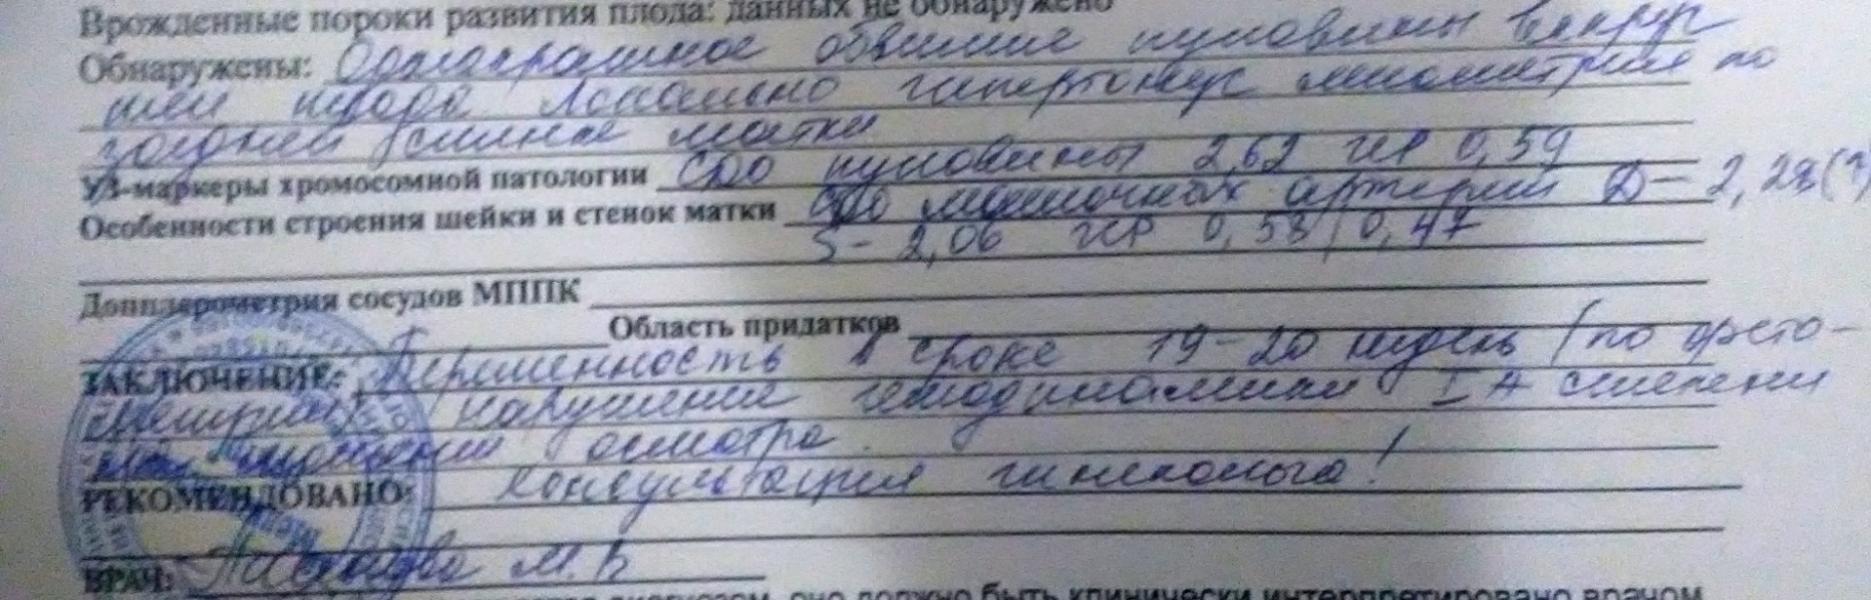 Врожденные пороки развития плода: данных не обнаружено
Обнаружены: Однократное обвитие пуповины вокруг
шеи плода. Локально гипертонус миометрия по
задней стенке матки
УЗ-маркеры хромосомной патологии СДО пуповины 2,62 ИР 0,59
Особенности строения шейки и стенок матки СДО маточных артерий D- 2,28(?)
S- 2,06 ИР 0,58/0,47
Допплерометрия сосудов МППК
Область придатков
ЗАКЛЮЧЕНИЕ: Беременность в сроке 19-20 недель (по фето-
метрии) нарушение гемодинамики I А степени
на момент осмотра.
РЕКОМЕНДОВАНО: Консультация гинеколога!
ВРАЧ: М.В
оно должно быть клинически интерпретировано врачом